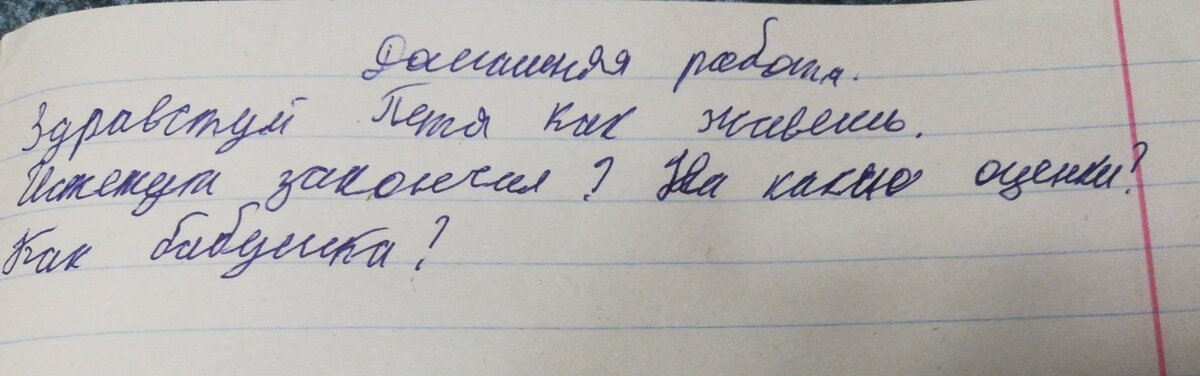 Домашняя работа.
Здравствуй Петя как живёшь.
закончил? На какие оценки?
Как бабушка?